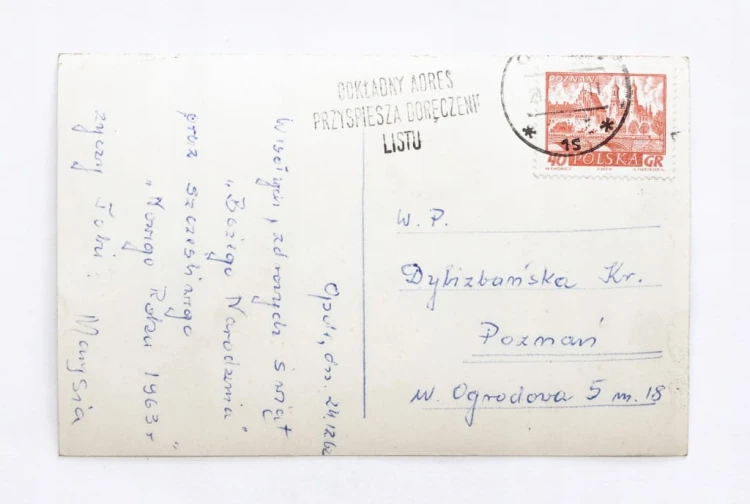 DOKŁADNY ADRES
PRZYSPIESZA DORĘCZENIE
LISTU
POZNAŃ
15
40 POLSKA GR
Opole, dn. 24.12.62
Wesołych, zdrowych Świąt
„Bożego Narodzenia"
oraz szczęśliwego
„Nowego Roku 1963 r"
życzy Tobie:
Marysia
W. P.
Dylizbańska Kr.
Poznań
ul. Ogrodowa 5 m. 18